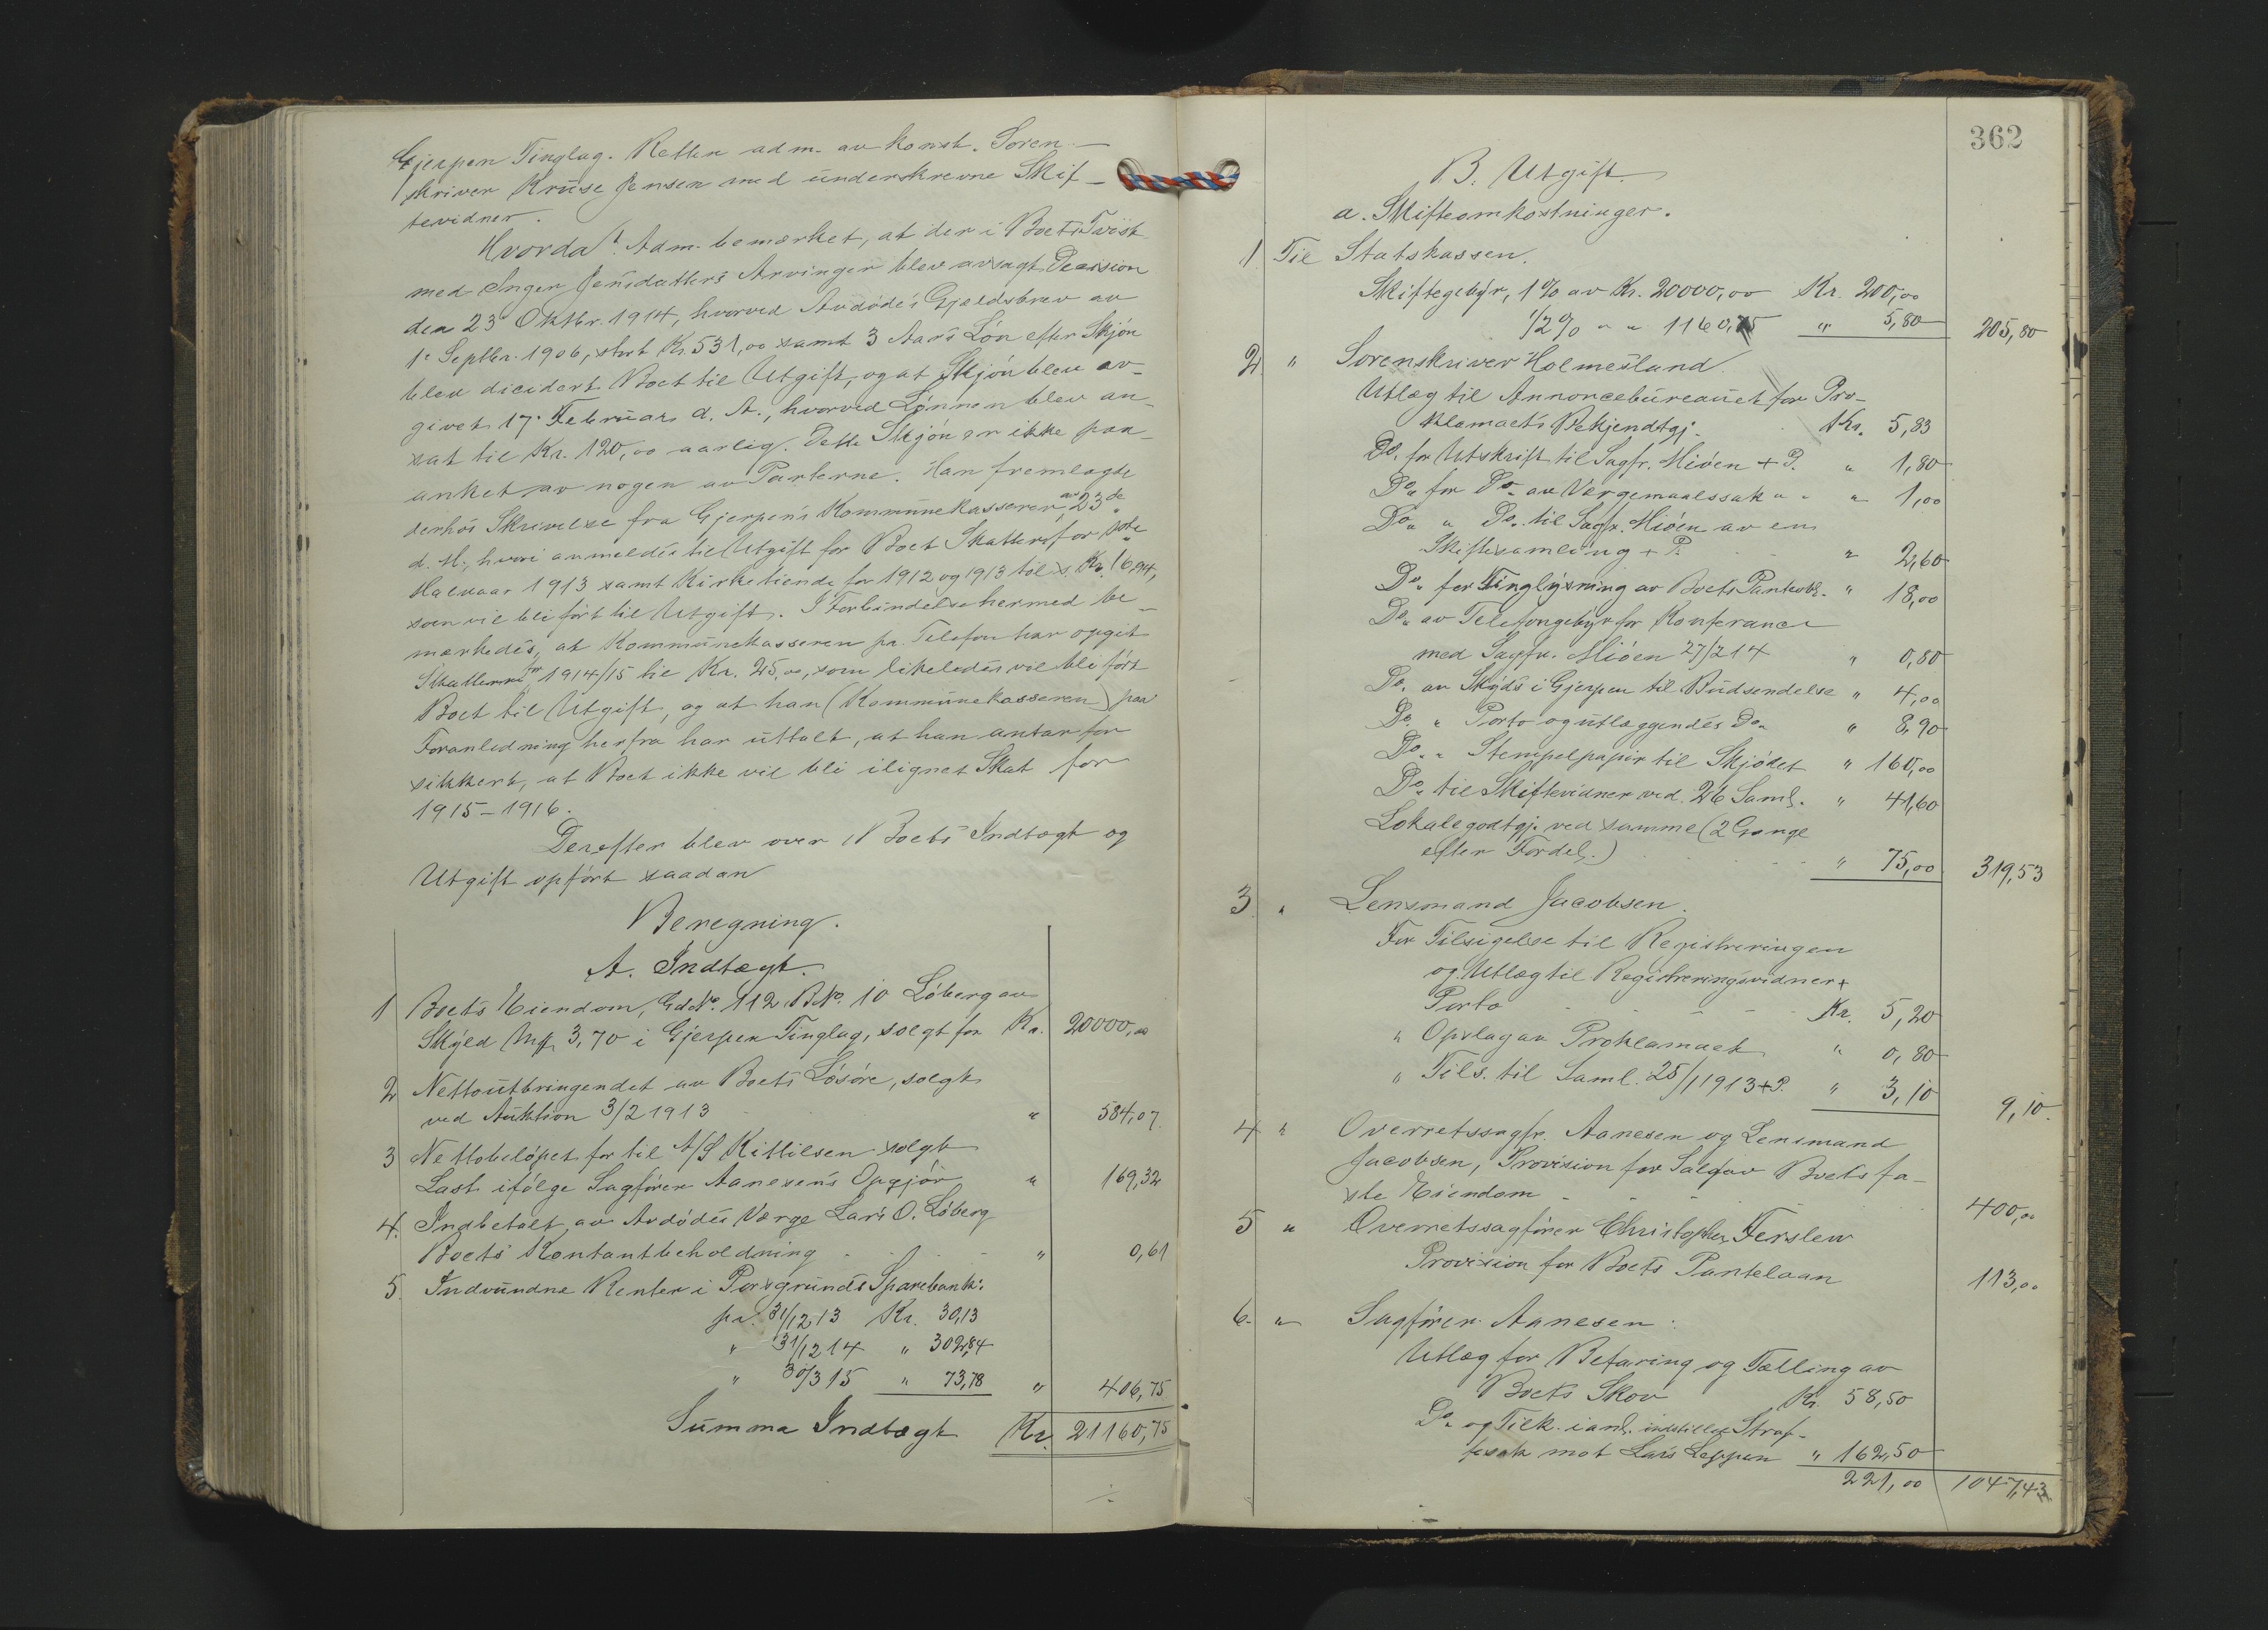 Gjerpen Tinglag. Retten adm. av konst. Soren-
skriver Kruse Jensen med underskrevne Skif-
tevidner.
Hvorda! Adm. bemærket, at der i Boets Tvist
med Inger Jensdatters Arvinger blev avsagt Decision
den 23' Oktbr. 1914, hvorved Avdødes Gjeldsbrev av
1' Septbr. 1906, stort Kr. 531,00 samt 3 Aars Løn efter Skjøn
blev dicidert Boet til Utgift, og at Skjøn blev av-
givet 17' Februar d. A., hvorved Lønnen blev an-
sat til Kr. 120,00 aarlig. Dette Skjøn er ikke paa-
anket av nogen av Parterne. Han fremlagde
derhos Skrivelse fra Gjerpens Kommunekasserer av 23de
d. M., hvori anmeldes til Utgift for Boet Skatter for sidste
Halvaar 1913 samt Kirketiende for 1912 og 1913 til s. Kr. 16,94,
som vil bli ført til Utgift. I Forbindelse hermed be-
merkedes, at Kommunekasseren pr. Telefon har opgit
Skatterne for 1914/15 til Kr. 25,00, som likeledes vil bli ført
Boet til Utgift, og at han (Kommunekasseren) paa
Foranledning herfra har uttalt, at han antar for
sikkert, at Boet ikke vil bli ilignet Skat for
1915-1916.
Derefter blev over Boets Indtægt og
Utgift opført saadan
Beregning.
A. Indtægt.
1 Boets Eiendom, Gd.No. 112 B.No. 10 Løberg av
Skyld Mrk 3,70 i Gjerpen Tinglag, solgt for Kr. 20000,00
2 Nettoutbringendet av Boets Løsøre, solgt
ved Auktion 3/2 1913 " 584,07
3 Nettobeløpet for til A/S Kittilsen solgt
Last ifølge Sagfører Aanesens Opgjør " 169,32
4. Indbetalt av Avdødes Værge Lars O. Løberg
Boets Kontantbeholdning " 0,61
5. Indvundne Renter i Porsgrunds Sparebank:
pr. 31/12 13 Kr. 30,13
" 31/12 14 " 302,84
" 30/3 15 " 73,78 " 406,75
Summa Indtægt Kr. 21160,75
362
B. Utgift.
a. Skifteomkostninger.
1 Til Statskassen.
Skiftegebyr, 1% av Kr. 20000,00 Kr. 200,00
1/2% " " 1160,75 " 5,80 205,80
2 " Sorenskriver Holmesland.
Utlæg til Annoncebureauet for Pro-
klamaets Bekjendtgj. Kr. 5,83
Do. for Utskrift til Sagfr. Miøen + P. " 1,80
Do. for Do. av Værgemaalssak " " " 1,00
Do. " Do. til Sagfr. Miøen av en
Skiftesamling + P. " 2,60
Do. for Tinglysning av Boets Panteobl. " 18,00
Do. av Telefongebyr for Konferance
med Sagfr. Miøen 27/2 14 " 0,80
Do. av Skyds i Gjerpen til Budsendelse " 4,00
Do. " Porto og utlæggendes Do. " 8,90
Do. " Stempelpapir til Skjødet " 160,00
Do. til Skiftevidner ved 26 Saml. " 41,60
Lokalegodtgj. ved samme (2 Gange
efter Fordel.) " 75,00 319,53
3 " Lensmand Jacobsen.
For Tilsigelse til Registreringen
og Utlæg til Registreringsvidner +
Porto Kr. 5,20
" Opslag av Proklamaet " 0,80
" Tils. til Saml. 25/1 1913 + P. " 3,10 9,10
4 " Overretssagfr. Aanesen og Lensmand
Jacobsen, Provision for Salg av Boets fa-
ste Eiendom 400,00
5 " Overretssagfører Christopher Ferslew
Provision for Boets Pantelaan 113,00
6. " Sagfører Aanesen:
Utlæg for Befaring og Tælling av
Boets Skov Kr. 58,50
Do. og Tilk. i anl. indstillet Straf-
fesak mot Lars Leppen " 162,50
221,00 1047,43